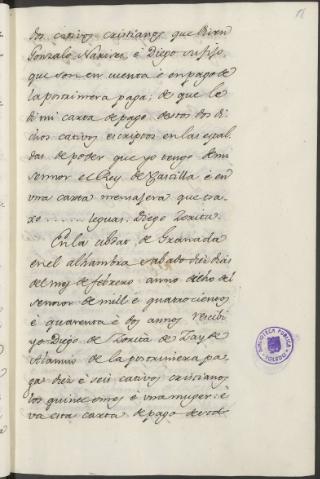 dos cativos cristianos que dieron
Gonzalo Narvez, é Diego
que son en cuenta é en pago de
la postrimera paga; de que le
di mi carta de pago destos dos di
chos cativos escriptos en las espal
das de poder que yo tengo de mi
sennor el Rey de Castilla é en
una carta mensagera que tra
xo ........ leguas. Diego Zorita.
En la cibdat de Granada
en el alhambra sabado diez dias
del mes de febrero anno dicho del
sennor de mill é quatrocientos
é quarenta é dos annos recibi
yo Diego de Zorita de Zayde
Alamin de la postrimera pa
ga diez é seis cativos cristianos
los quince omes é una muger: é
va esta carta de pago de
BIBLIOTECA PUBLICA
TOLEDO